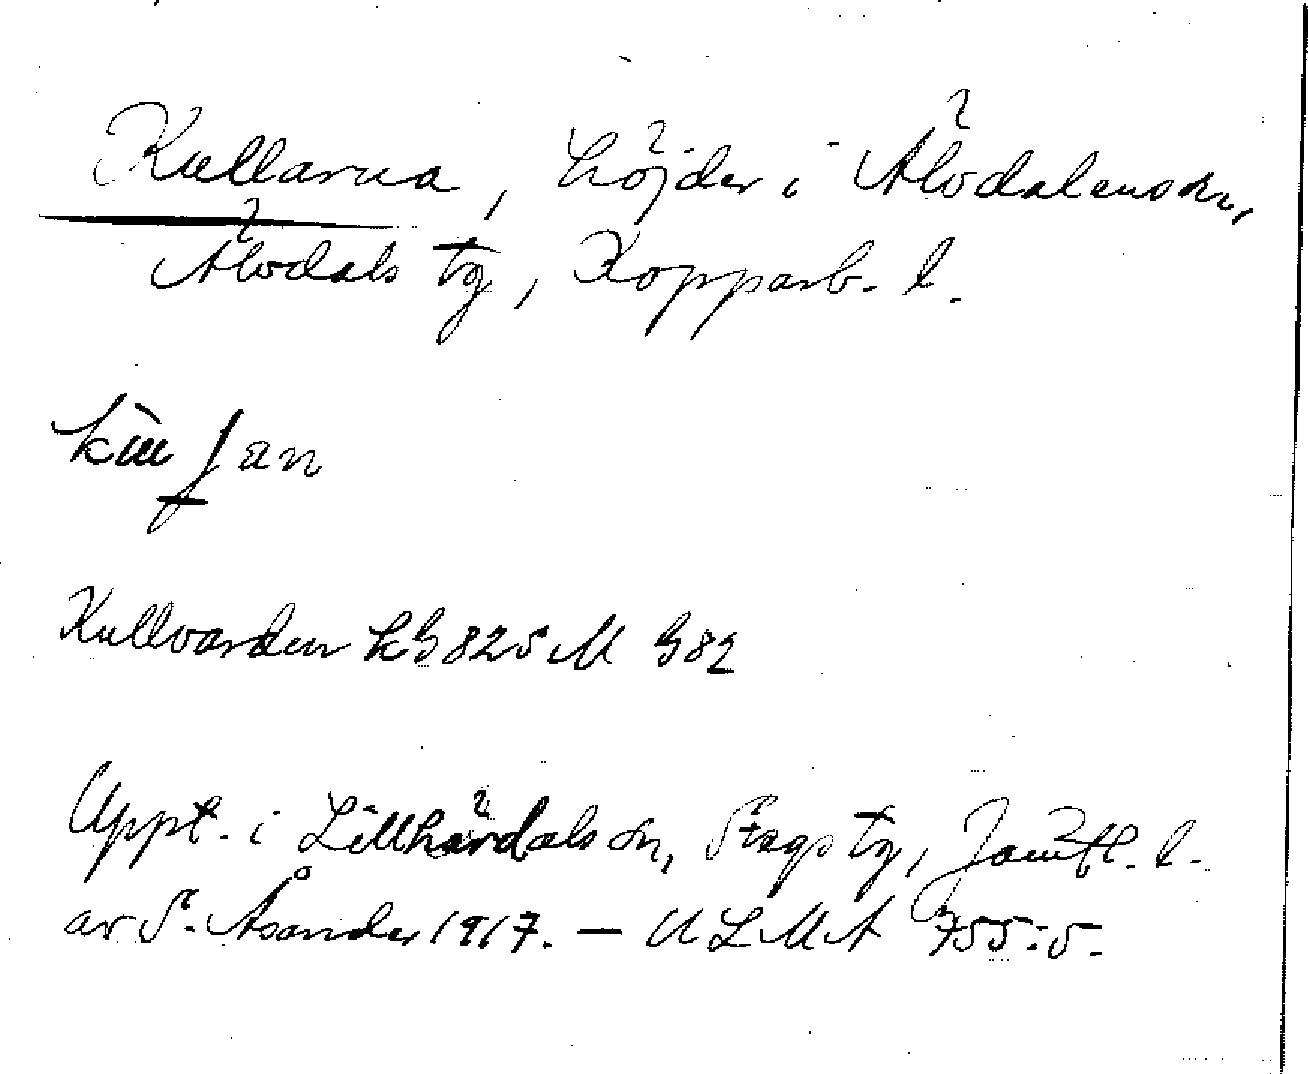 Kullarna, höjder i Älvdalens sn,
Älvdals tg, Kopparb. l.
Kullvarden kb 825 M 982
Uppt. i Lillhärdals sn, Svegs tg, Jämtl. l.
av S. Åsander 1917. — ULMA 755:5.